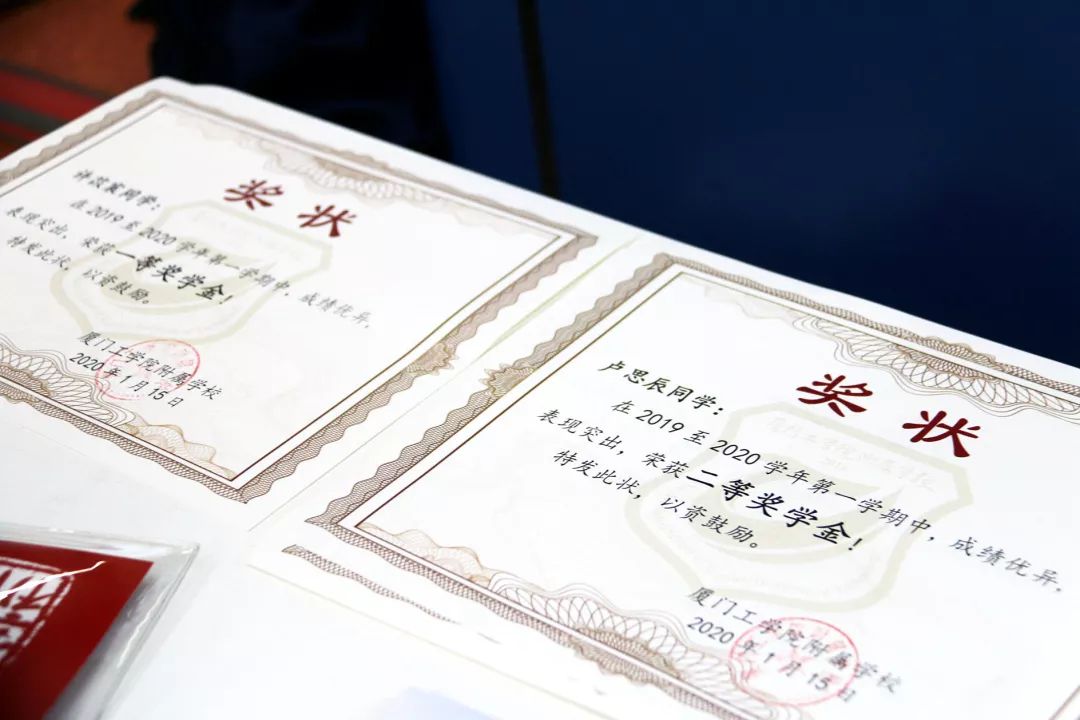 奖状
同学：
在2019至2020学年第一学期中，成绩优异，
表现突出，荣获一等奖学金！
特发此状，以资鼓励。
厦门工学院附属学校
2020年1月15日
奖状
卢思辰同学：
在2019至2020学年第一学期中，成绩优异，
表现突出，荣获二等奖学金！
特发此状，以资鼓励。
厦门工学院附属学校
2020年1月15日